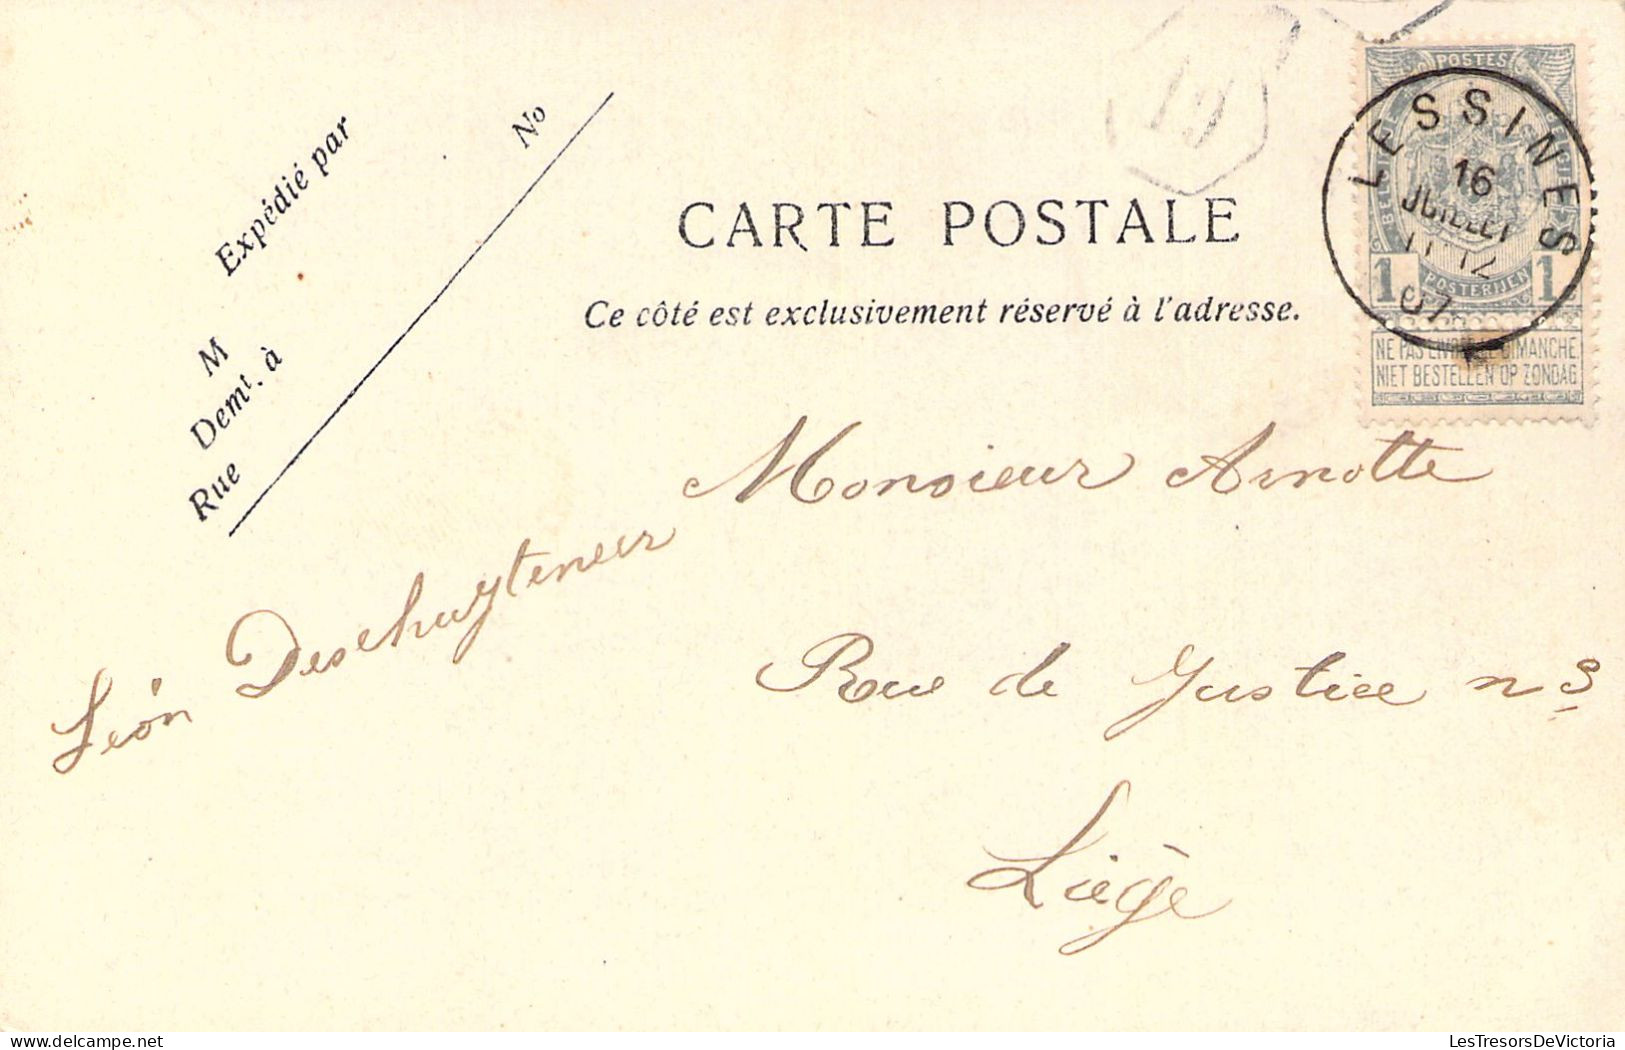 Expédié par
No
M
Demt. à
Rue
CARTE POSTALE
Ce côté est exclusivement réservé à l'adresse.
19
POSTES
POSTERIJEN
1 1
NE PAS LIVRER LE DIMANCHE
NIET BESTELLEN OP ZONDAG
LESSINES
16
JUILLET
07
Monsieur Arnotte
Léon Deschuyteneer
Rue de Justice n 3
Liège
delcampe.net
LesTresorsDeVictoria